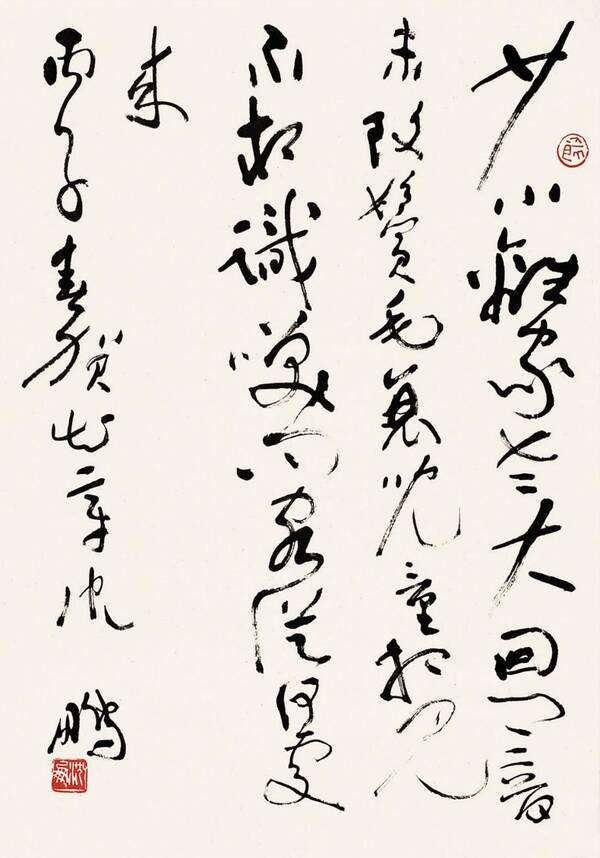 少小離家老大回鄉音
未改鬢毛衰兒童相見
不相識笑問客從何處
來
丙子春賀知章沈鵬